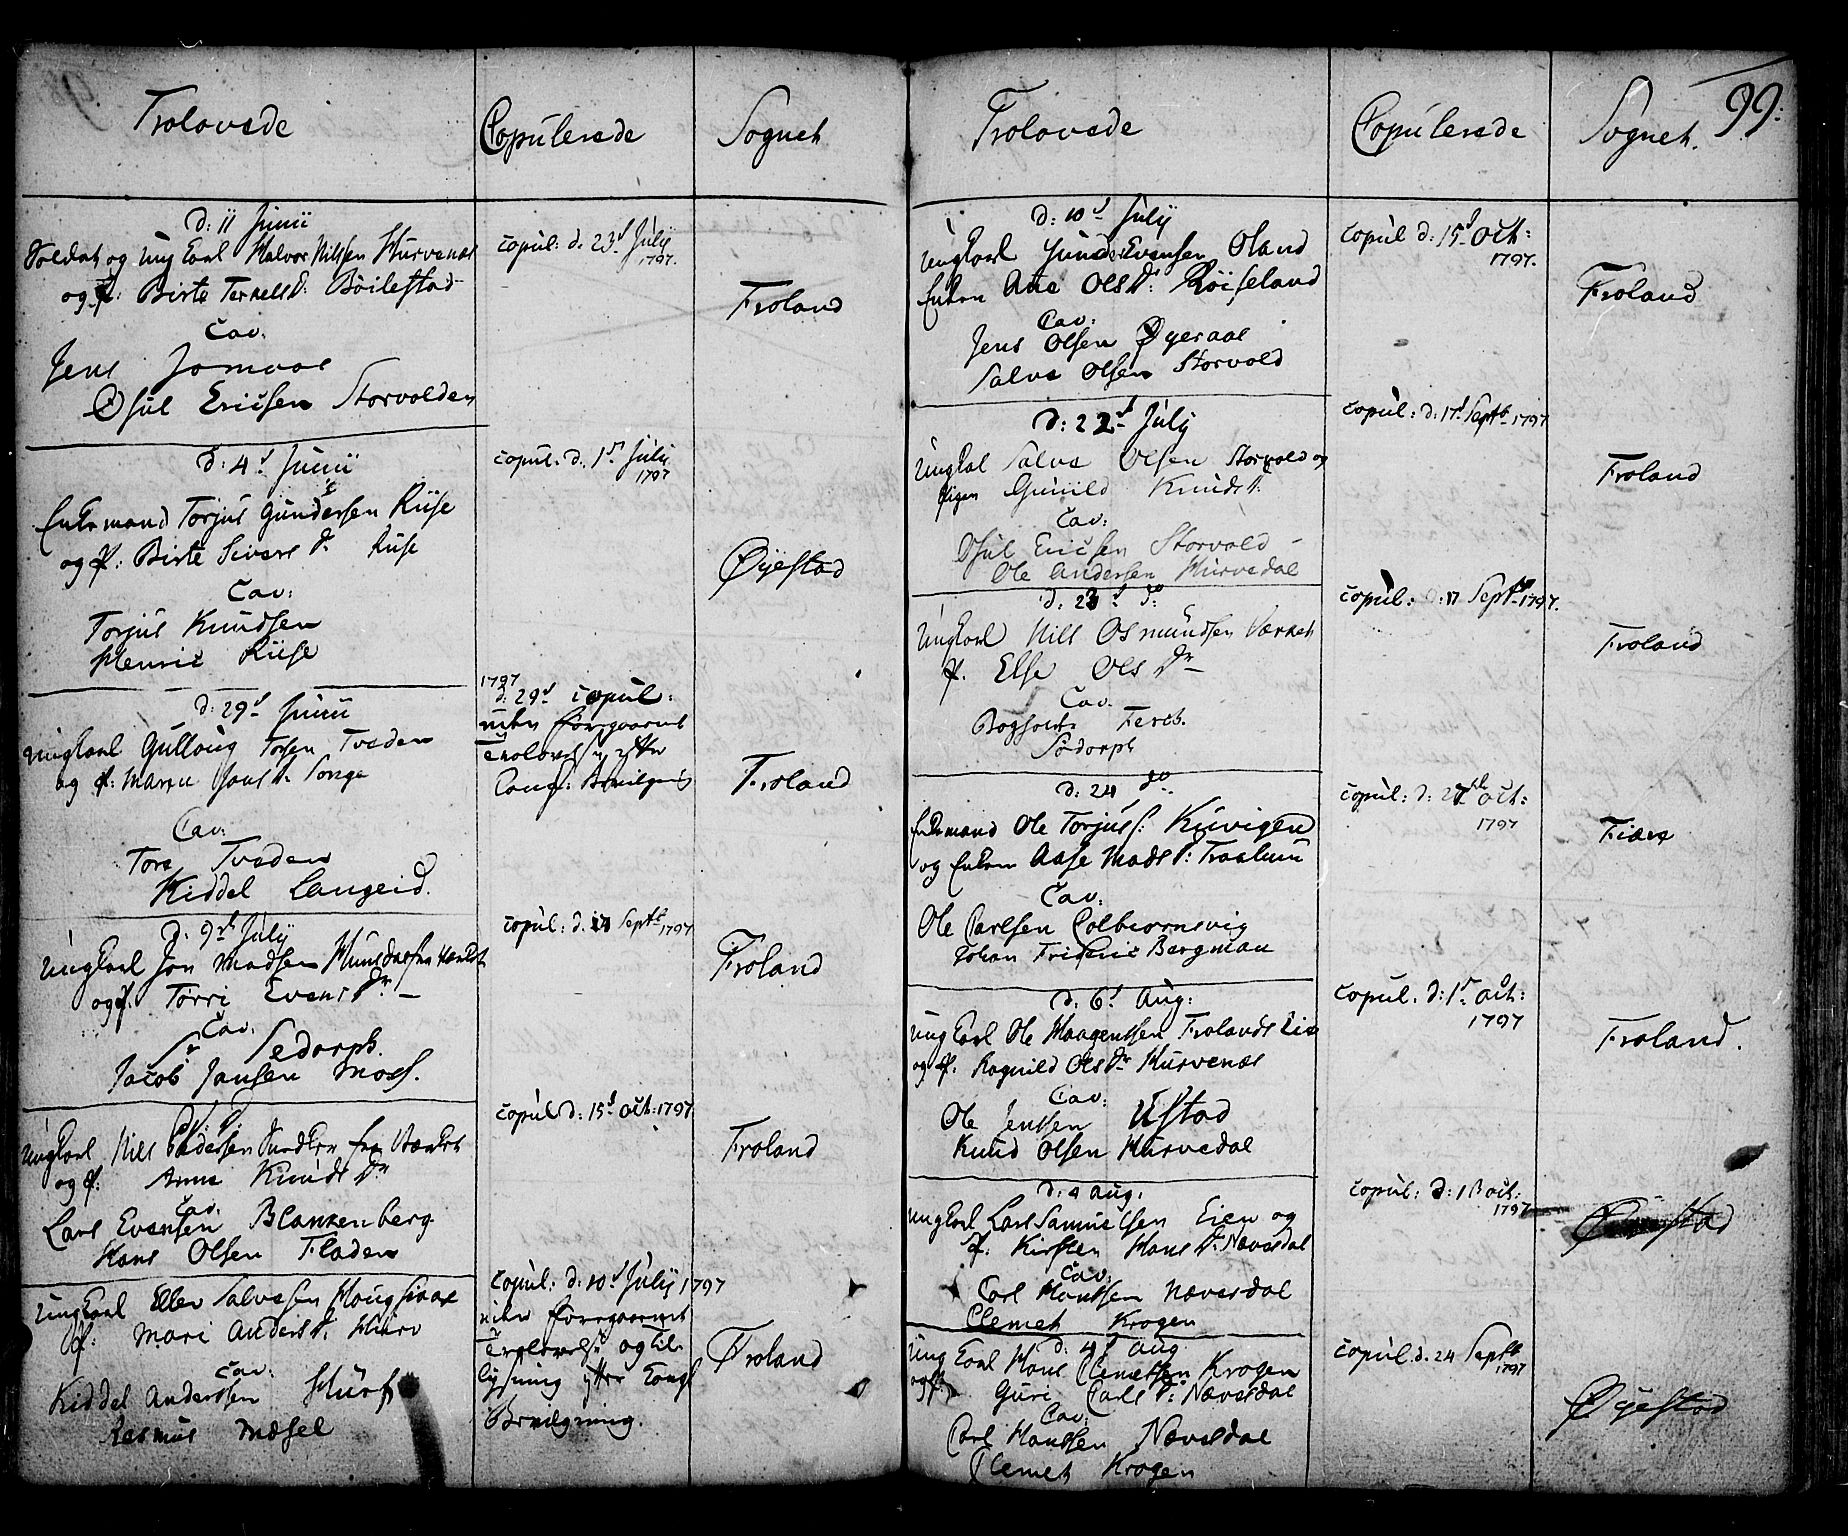 Trolovede
Copulerede
Sognet
d: 11 Junii
Soldat og Ung Karl Halvor Nilssen Hurvenæs
og P: Birte Terkelsd: Böilestad
Cav:
Jens Jomaas
Osul Ericsen Storvolden
copul: d. 23d Julij
1797.
Froland
d: 4d Junii
Enkemand Torjus Gundersen Riise
og P: Birte Siversdr Riise
Cav:
Torjus Knudsen
Henric Riise
copul: d. 1st Julij
1797
Øyestad
d: 29d Junii
Ungkarl Gulloug Torsen Tveden
og P: Maren Jonsdr Songe
Cav:
Tore Tveden
Kiddel Langeid.
1797
d: 29d copul:
uden foregaaende
Trolovelse efter
Kongl: Bevilgning
Froland
d. 9de July
Ungkarl Jon Madsen
og P. Torri Evensdr
Cav.
Sr Sedorph.
Jacob Jansen Moss.
copul: d. Septb 1797
Froland
Ungkarl Nils Pedersen fra Værket
og P: Anne Knudsdr
Cav.
Lars Evensen Blankenberg
Hans Olsen Fladen
copul d: 15d Oct: 1797
Froland
Ungkarl Ellev Salvesen
P: Mari Andersd: Hurv
Cav:
Kiddel Anderssen Hurf
Rasmus Mæsel
copul: d. 10d Julij 1797
uden foregaaende
Trolovelse og til-
lysning efter Kongl
Bevilgning.
Froland
Trolovede
Copulerede
Sognet.
99:
d: 10d July
Ungkarl Gunder Evensen Oland
Enken Ane Olsdr: Röiseland
Cav:
Jens Olsen Øygeraae
Salve Olsen Storvold
copul d: 15d Oct:
1797.
Froland
d: 22d July
Ungkarl Salve Olsen Storvold og
Pigen Gunild Knudsd:
Cav:
Osul Ericsen Storvold
Ole Andersen Hurvedal
copul: d: 17d Septb 1797
Froland
d. 23d do
Ungkarl Nils Osmundsen Værket
P. Else Olsdr
Cav.
Bogholder Ferch.
Södorph
copul: d: 17 Septb 1797.
Froland
d: 24 do
Enkemand Ole Torjuss: Kuvigen
og Enken Aase Madsd: Traalum
Cav:
Ole Carlsen Colbiornsvig
Johan Frideric Bergman
copul: d: Oct:
1797
Fiære
d. 6d Aug:
Ungkarl Ole Haagenssen Frolands
og P. Ragnild Olsdr Hurvenæs
Cav:
Ole Jenssen Ustad
Knud Olsen Hurvedal
copul. d: 1st Oct:
1797
Froland.
d: 4 Aug.
Ungkarl Lars Samuelsen Eien og
P. Kirsten Hansdr: Næversdal
Cav
Carl Hanssen Næversdal
Clemet Krogen
copul: d: Oct:
1797
Øyestad
d. 4d Aug.
Ungkarl Hans Clemetsen Krogen
og P. Guri Carlsd: Næversdal
Cav:
Carl Hanssen Næversdal
Clemet Krogen
copul. d. 24 Septb
1797
Øyestad